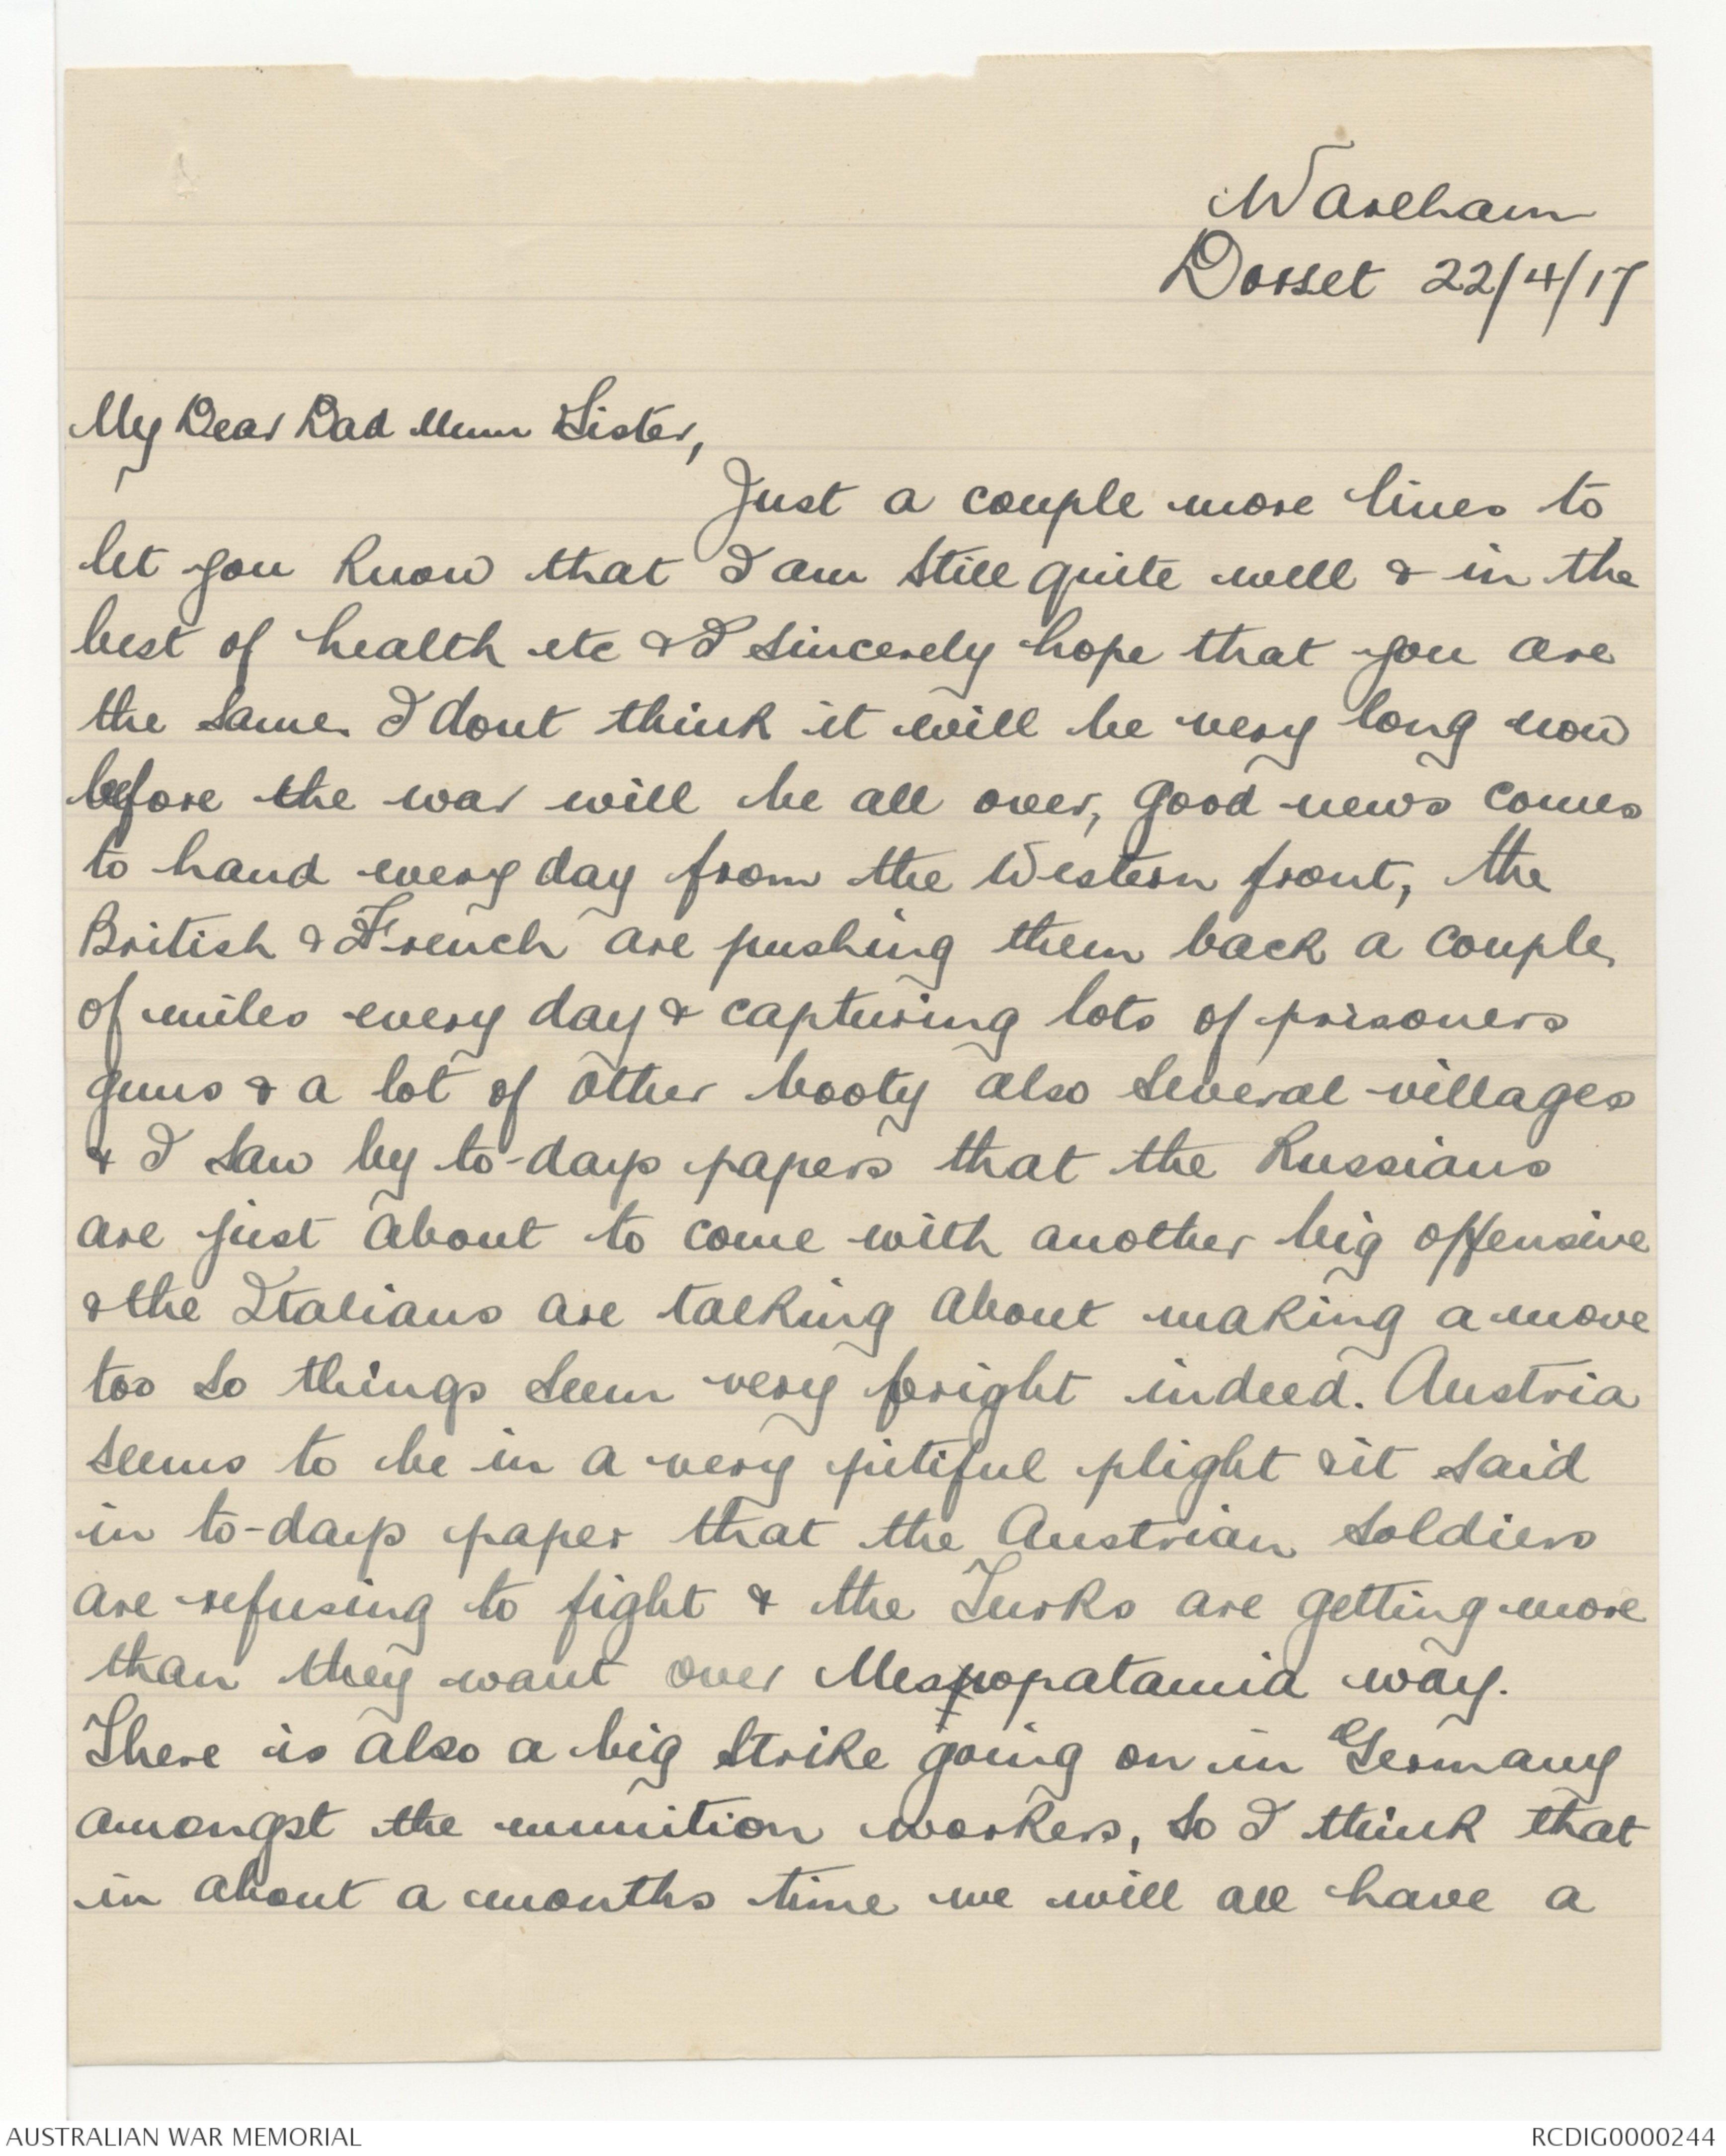 Wareham
Dorset 22/4/17
My Dear Dad Mum Sister,
Just a couple more lines to
let you know that I am still quite well & in the
best of health etc & I sincerely hope that you are
the same. I dont think it will be very long now
before the war will be all over, good news comes
to hand every day from the Western front, the
British & French are pushing them back a couple
of miles every day & capturing lots of prisoners
guns & a lot of other booty also several villages
& I saw by to-days papers that the Russians
are just about to come with another big offensive
& the Italians are talking about making a move
too so things seem very bright indeed. Austria
seems to be in a very pitiful plight & it said
in to-days paper that the Austrian soldiers
are refusing to fight & the Turks are getting more
than they want over Mesopopatamia way.
There is also a big strike going on in Germany
amongst the munition workers, so I think that
in about a months time we will all have a
AUSTRALIAN WAR MEMORIAL
RCDIG0000244